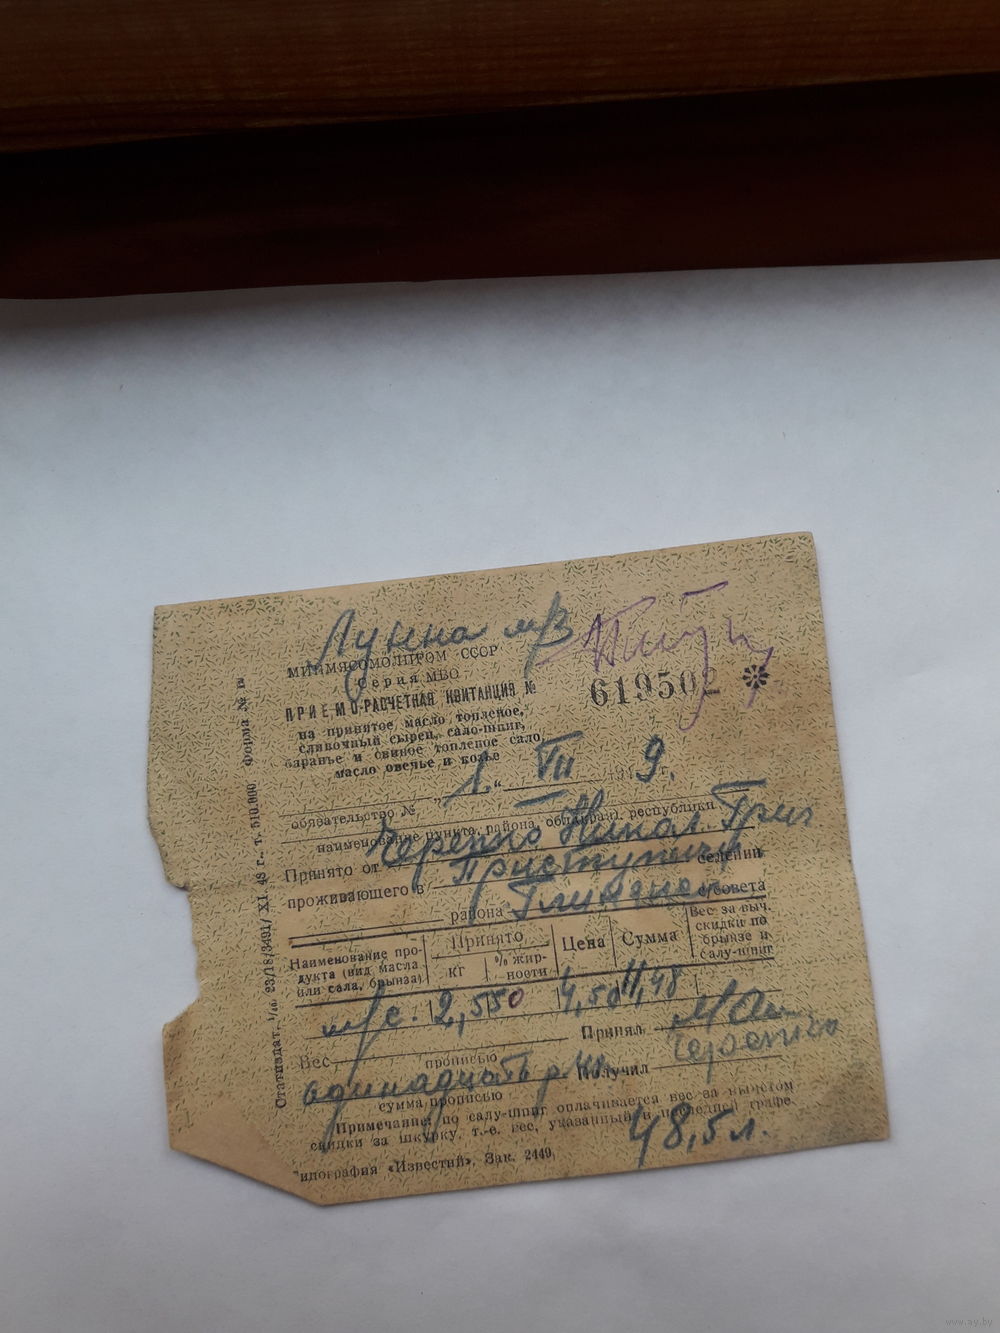 Лунна м/з
МИНМЯСОМОЛПРОМ СССР
Серия МВО
ПРИЕМО-РАСЧЕТНАЯ КВИТАНЦИЯ №
619502 *
на принятое масло топленое,
сливочный сырец, сало-шпиг,
баранье и свиное топленое сало,
масло овечье и козье
„ 1 “ VII 19 9.
обязательство №
наименование пункта, района, обл. (края), республики
Принято от Черепко Никол. Григ
проживающего в селении
района с/совета
Наименование продукта (вид масла или сала, брынза)
Принято
кг
% жирности
Цена
Сумма
Вес за выч. скидки по брынзе и салу-шпиг
м/с. 2,550 4,50 11,48
Принял
Вес
прописью
Получил Черепко
одинадцать р
сумма прописью
Примечание: по салу-шпиг оплачивается вес за вычетом
скидки за шкурку, т.-е. вес, указанный в последней графе.
48,5 л.
Типография «Известий». Зак. 2449.
Статиздат. 23/18/3491/ XI. 48 г. т. 510.000 Форма №
www.ay.by